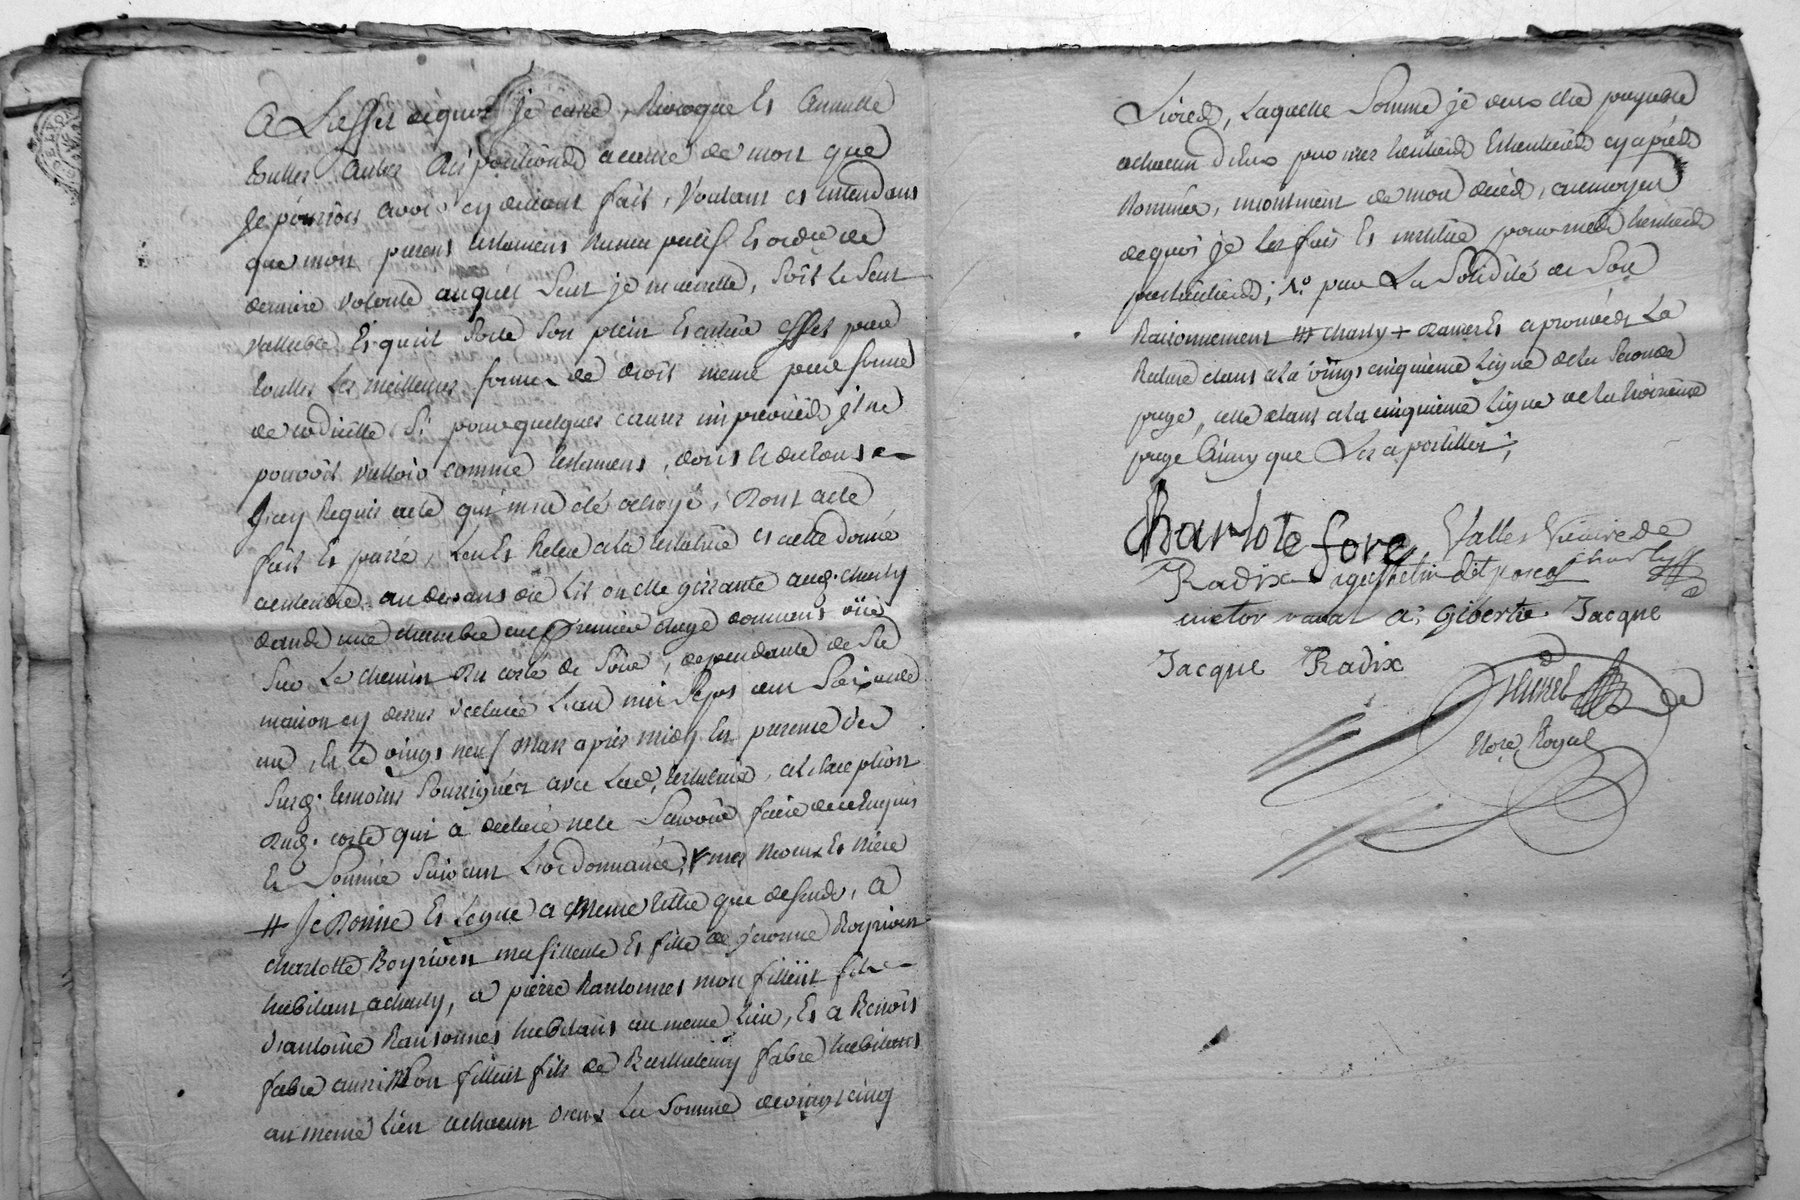 A Leffet dequoy je casse, Revoque Et Annulle
touttes Autres dispositions a cause de mort que
je pourrois avoir cy devant fait, Voulant et entendant
que mon present testament nuncupatif Et ordre de
derniere volonté auquel seul je m'arrette, soit le seul
vallable Et quil sorte son plein Et entier effet pour
touttes Les meilleures formes de droit meme pour forme
de codicille Si pour quelques causes impreveües il ne
pouvoit valloir comme testament, dont et du tout
j'ay Requis acte qui m'a eté octroyé, Dont acte
fait Et passé, leu Et Releu a la testatrice et a elle donné
a entendre au devant du Lit ou elle gissante aud. charly
dans une chambre au premier etage donnant vüe
Sur Le chemin du coté de Soir, dependante de Sa
maison cy dessus declarée L'an mil Sept cent Soixante
un, Et le vingt neuf Mars après midy En presence des
Susd. temoins Soussignés avec Lad. testatrice, a L'exception
dud. coste qui a declaré ne le Savoir faire de ce Enquis
Et Sommé Suivant L'ordonnance; + mes neveux Et niece
# Je Donne Et Legue a Meme tittre que dessus, a
charlotte Boyriven ma filleulle Et fille de jerome Boyriven
habitant a charly, a pierre Ransonnes mon filleul fils
d'antoine Ransonnes habitant au meme Lieu, Et a Benoit
fabre aussi Mon filleul fils de Barthelemy fabre habitant
au meme Lieu a chacun d'eux La Somme de vingt cinq
Livres, Laquelle Somme je veux etre payable
a chacun d'eux par mes heritiers Et heritieres cy après
Nommés, incontinent de mon decés, au moyen
dequoi je les fais Et institue pour mes heritiers
particuliers; 1.º pour La Solidité de Son
Raisonnement # charly + dames Et aprouvées La
Rature etant a la vingt cinquieme Ligne de la Seconde
page, celle etant a la cinquieme Ligne de la troisieme
page Ainsy que Les apostilles;
Charlote fore Valles Vicaire de
Radix charly
victor a. giberti Jacque
Jacque Radix
Nore. Royal